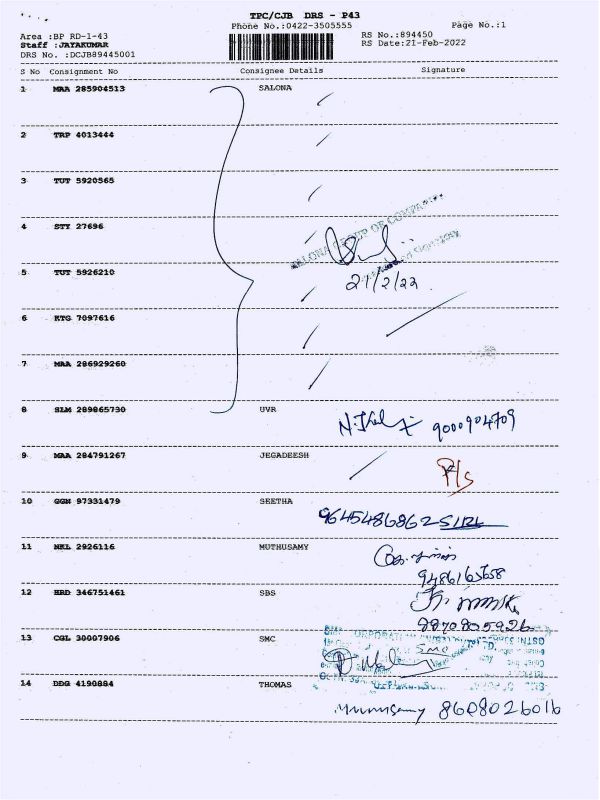 TPC/CJB DRS - P43
Phone No.:0422-3505555 Page No.:1
Area :BP RD-1-43 RS No.:894450
Staff :JAYAKUMAR RS Date:21-Feb-2022
DRS No. :DCJB89445001
S No Consignment No Consignee Details Signature
1 MAA 285904513 SALONA
2 TRP 4013444
3 TUT 5920565
4 STY 27696
SALONA GROUP OF COMPANIES
5 TUT 5926210
21/2/22
6 KTG 7097616
7 MAA 286929260
8 SLM 289865730 UVR
9000904709
9 MAA 284791267 JEGADEESH
P/s
10 GGN 97331479 SEETHA
9645486862
11 NKL 2926116 MUTHUSAMY
9486163658
12 HRD 346751461 SBS
8870805926
13 CGL 30007906 SMC
SMC
14 DDG 4190884 THOMAS
8608026016